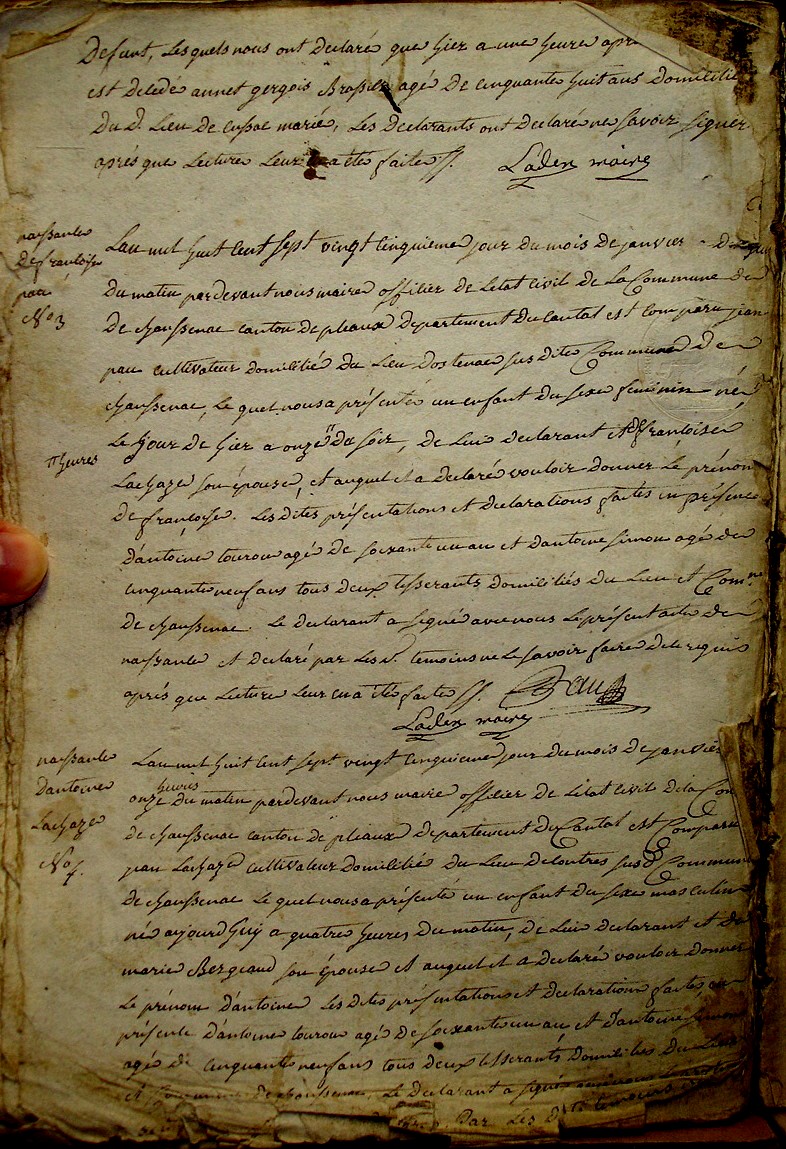 Defunt, lesquels nous ont declaré que hier a une heure apr
est decedé annet gergois Brassier agé de cinquante huit ans domicilié
du d. Lieu de cussac marié, Les declarants ont declaré ne savoir signer
aprés que Lecture Leur en a été faite
Laden maire
naissance
de francoise
pau
No 3
Lan mil huit cent sept vingt cinquieme jour du mois de janvier
du matin pardevant nous maire officier de letat civil de La Commune de
de chaussenac canton de pleaux departement du Cantal est comparu jean
pau cultivateur domicilié du Lieu dostenac susdite Commune de
chaussenac, Le quel nous a présenté un enfant du sexe feminin né
Le jour de hier a onze " du soir, de Lui declarant et de francoise
" heures
Lachaze son épouse, et auquel il a declaré vouloir donner Le prénom
de francoise. Les dites présentations et declarations faites en présence
dantoine tourou agé de soixante un an et dantoine simon agé de
cinquante neuf ans tous deux tisserants domiciliés du Lieu et Comne
de chaussenac. Le declarant a signé avec nous Le présent acte de
naissance et declaré par Les d. temoins ne Le savoir faire de ce requis
aprés que Lecture Leur en a été faite
Pau
Laden maire
naissance
dantoine
Lachaze
No 4.
Lan mil huit cent sept vingt cinquieme jour du mois de janvier
heures
onze du matin pardevant nous maire officier de Letat civil de la Com
de chaussenac canton de pleaux departement du Cantal est Comparu
jean Lachaze cultivateur domicilié du Lieu de contres susd. Commune
de chaussenac Le quel nous a présenté un enfant du sexe masculin
né aujourdhuy a quatre heures du matin, de Lui declarant et de
marie Bergeaud son épouse et auquel il a declaré vouloir donner
Le prénom dantoine Les dites présentations et declarations faites en
présence dantoine tourou agé de soixante un an et dantoine simon
agé de cinquante neuf ans tous deux tisserants domiciliés du Lieu
et Commune de chaussenac, Le declarant a signé
Par Les dits temoins